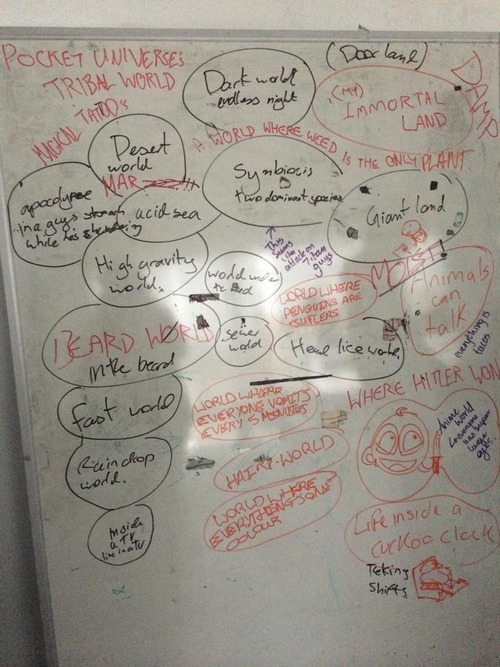 POCKET UNIVERSE's
TRIBAL WORLD
MAGICAL TATOO's
Dark world
endless night
(Door land)
(MY)
IMMORTAL
LAND
DAMP
Desert
world
A WORLD WHERE WEED IS THE ONLY PLANT
MAR
apocalypse
in a guys stomach
while he's
acid sea
Symbiosis
two dominant species
Giant land
High gravity
world.
world under
the Bed
This
seems
like
attack on
titan
guys
MOIST
WORLD WHERE
PENGUINS ARE
Animals
can
talk
everything is
tacos
BEARD WORLD
in the beard
sewer
world
Head lice world
fast world
WORLD WHERE
EVERYONE VOMITS
EVERY 5 MINUTES
WHERE HITLER WON
Anime
World
so everyone
has super
large
eyes.
Raindrop
world.
HAIRY WORLD
WORLD WHERE
EVERYTHINGS ONE
COLOUR
Inside
a TV
live in a TV
Life inside a
cuckoo clock
Teking
Shifts